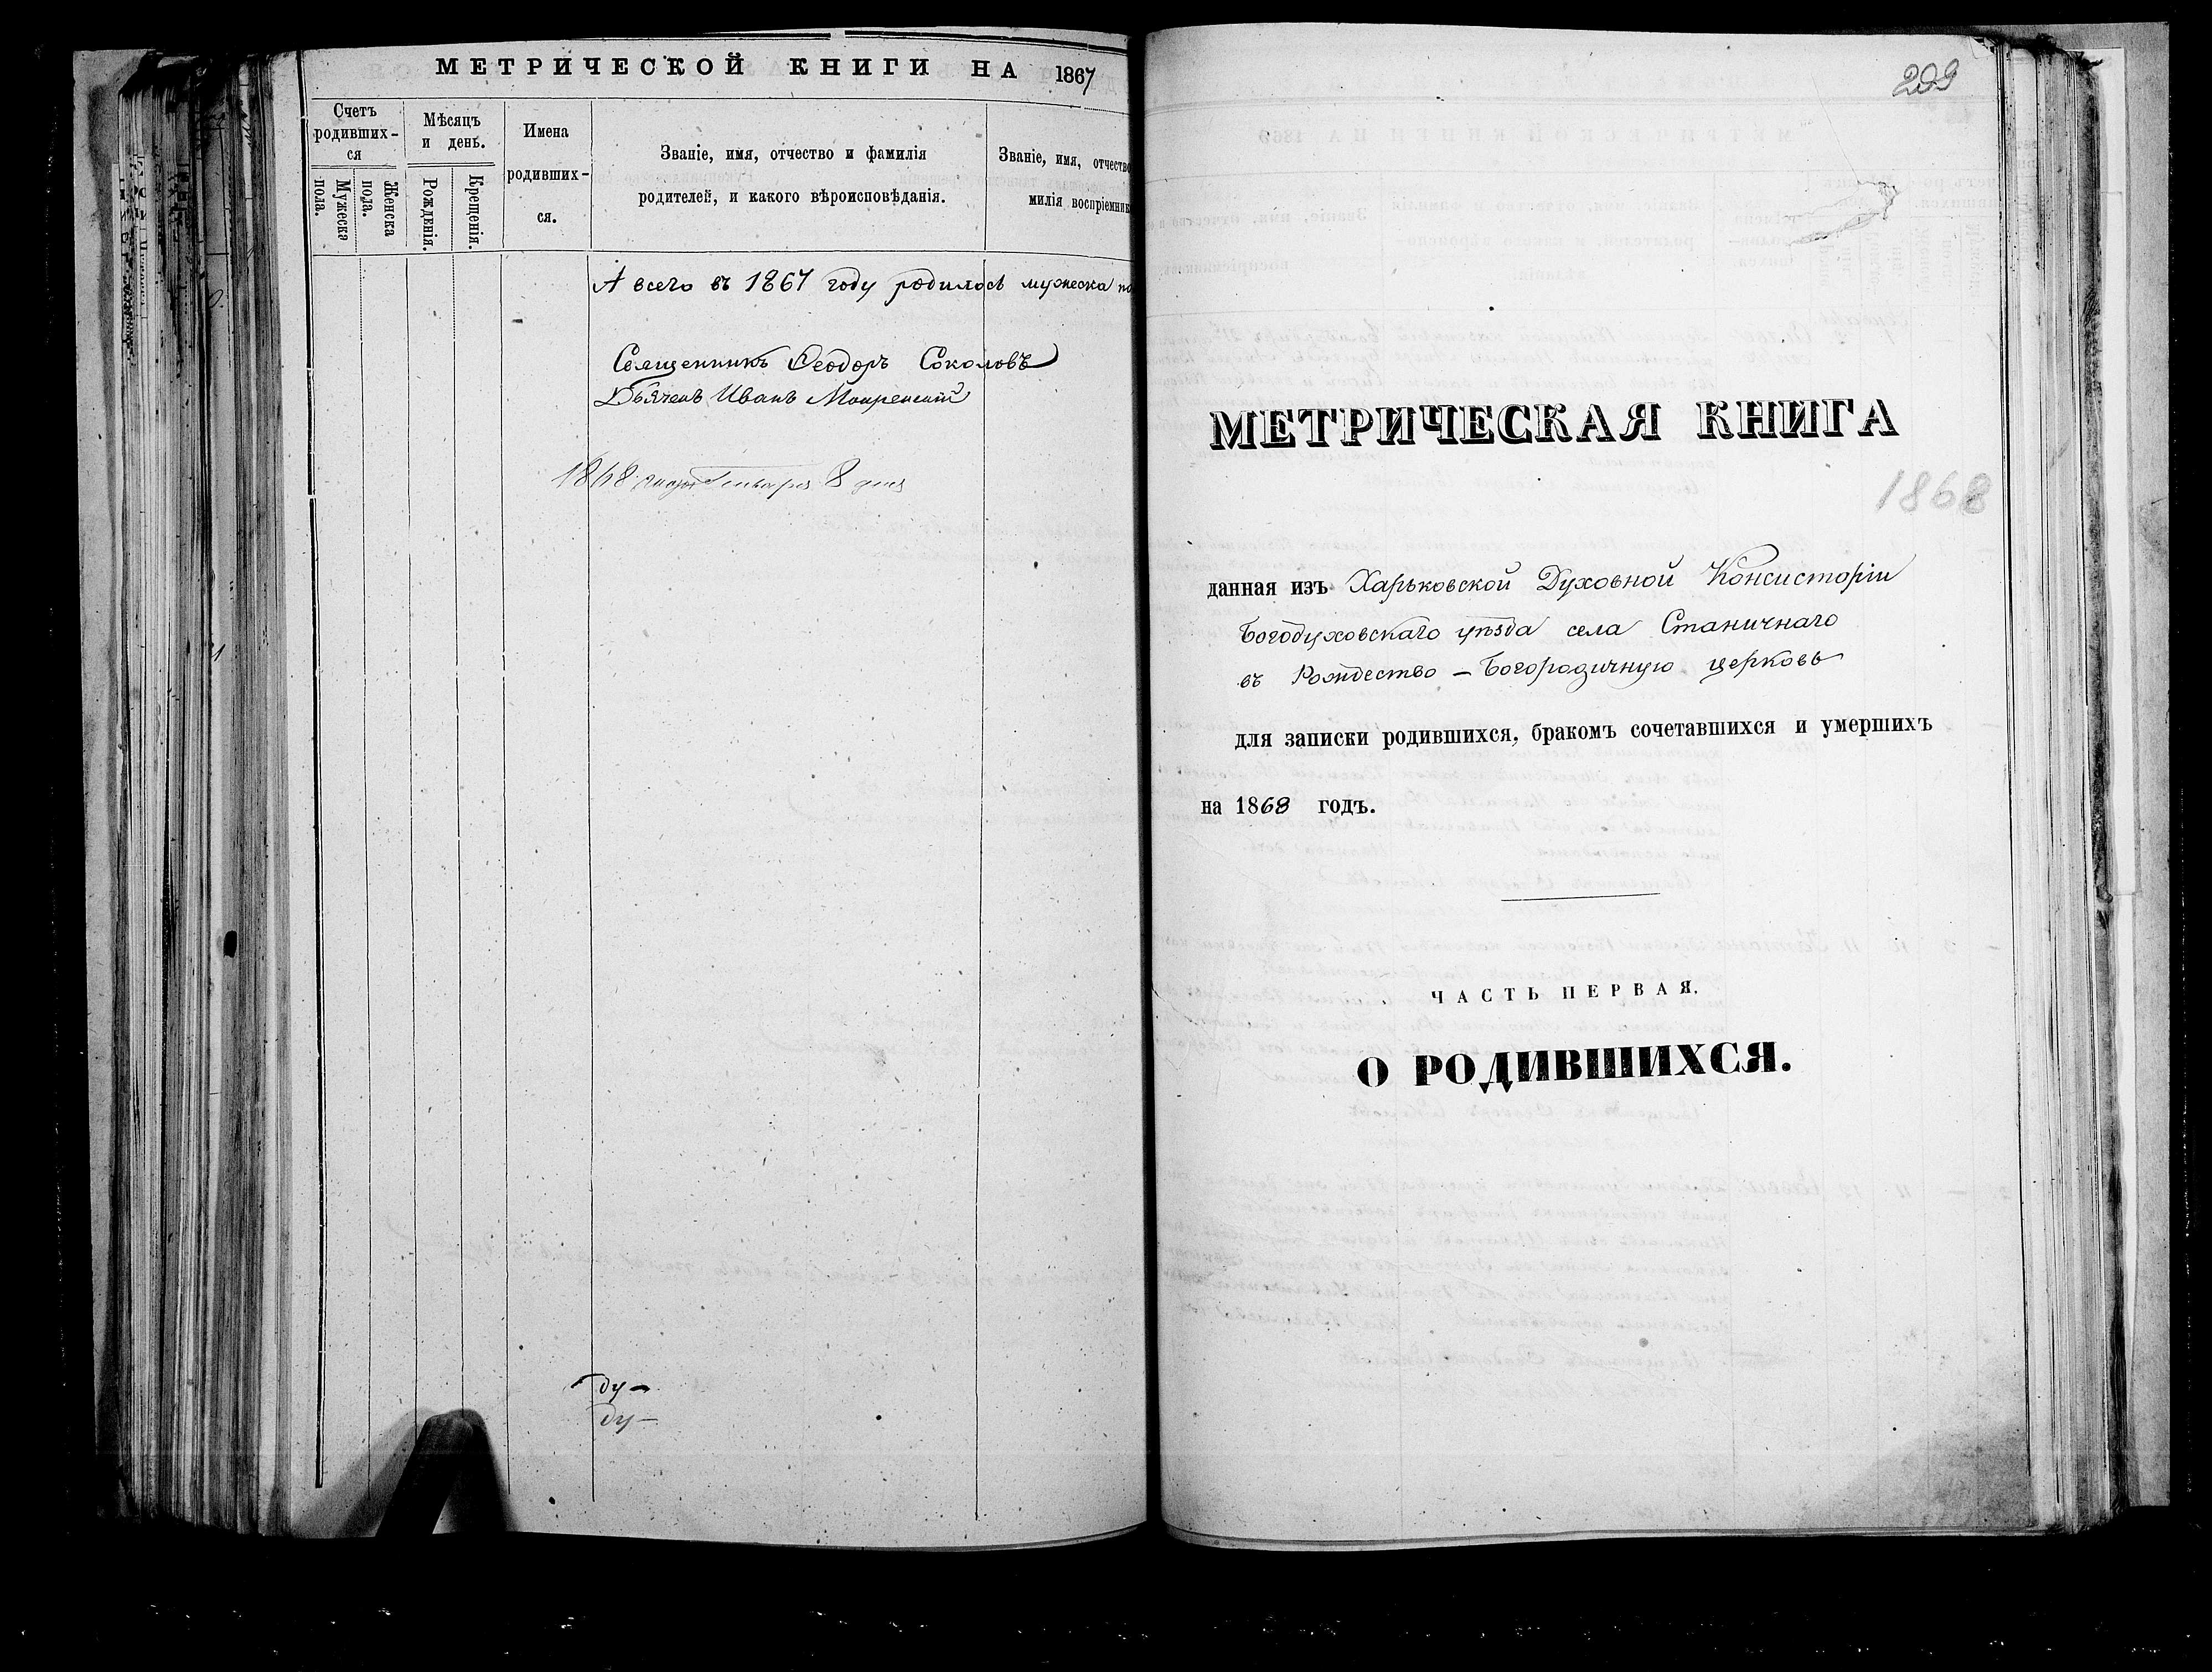 МЕТРИЧЕСКОЙ КНИГИ НА 1867
Счетъ родивших-ся
Мужеска пола.
Женска пола.
Мѣсяцъ и день.
Рожденія.
Крещенія.
Имена родивших-ся.
Званіе, имя, отчество и фамилія
родителей, и какого вѣроисповѣданія.
Званіе, имя, отчество
милія воспріемник
А всего въ 1867 году родилось мужеска по
Священникъ Ѳеодоръ Соколовъ
Дьячекъ Иванъ
1868 года Января 8 дня
ду-
ду-
209
МЕТРИЧЕСКАЯ КНИГА
1868
данная изъ Харьковской Духовной Консисторіи
Богодуховскаго уѣзда села Станичнаго
въ Рождество-Богородичную церковь
для записки родившихся, бракомъ сочетавшихся и умершихъ
на 1868 годъ.
ЧАСТЬ ПЕРВАЯ.
О РОДИВШИХСЯ.